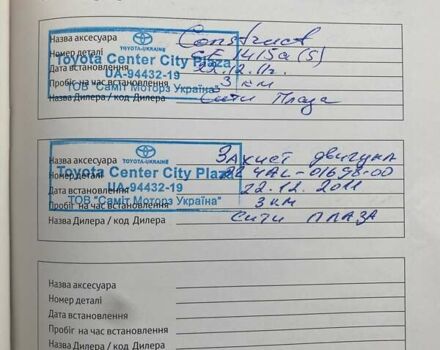 Назва аксесуара Construct
TOYOTA-UKRAINE
Номер деталі 1415a(S)
Toyota Center City Plaza
Дата встановлення 22.12.11г.
UA-94432-19
Пробіг на час встановлення 3 км
ТОВ "Саміт Моторз Україна"
Назва Дилера / код Дилера Сити Плаза
Назва аксесуара Захист двигуна
TOYOTA-UKRAINE
Toyota Center City Plaza
Номер деталі 4AL-01698-00
UA-94432-19
Дата встановлення 22.12.2011
ТОВ "Саміт Моторз Україна"
Пробіг на час встановлення 3 км
Назва Дилера / код Дилера Сити ПЛАЗА
Назва аксесуара
Номер деталі
Дата встановлення
Пробіг на час встановлення
Назва Дилера / код Дилера